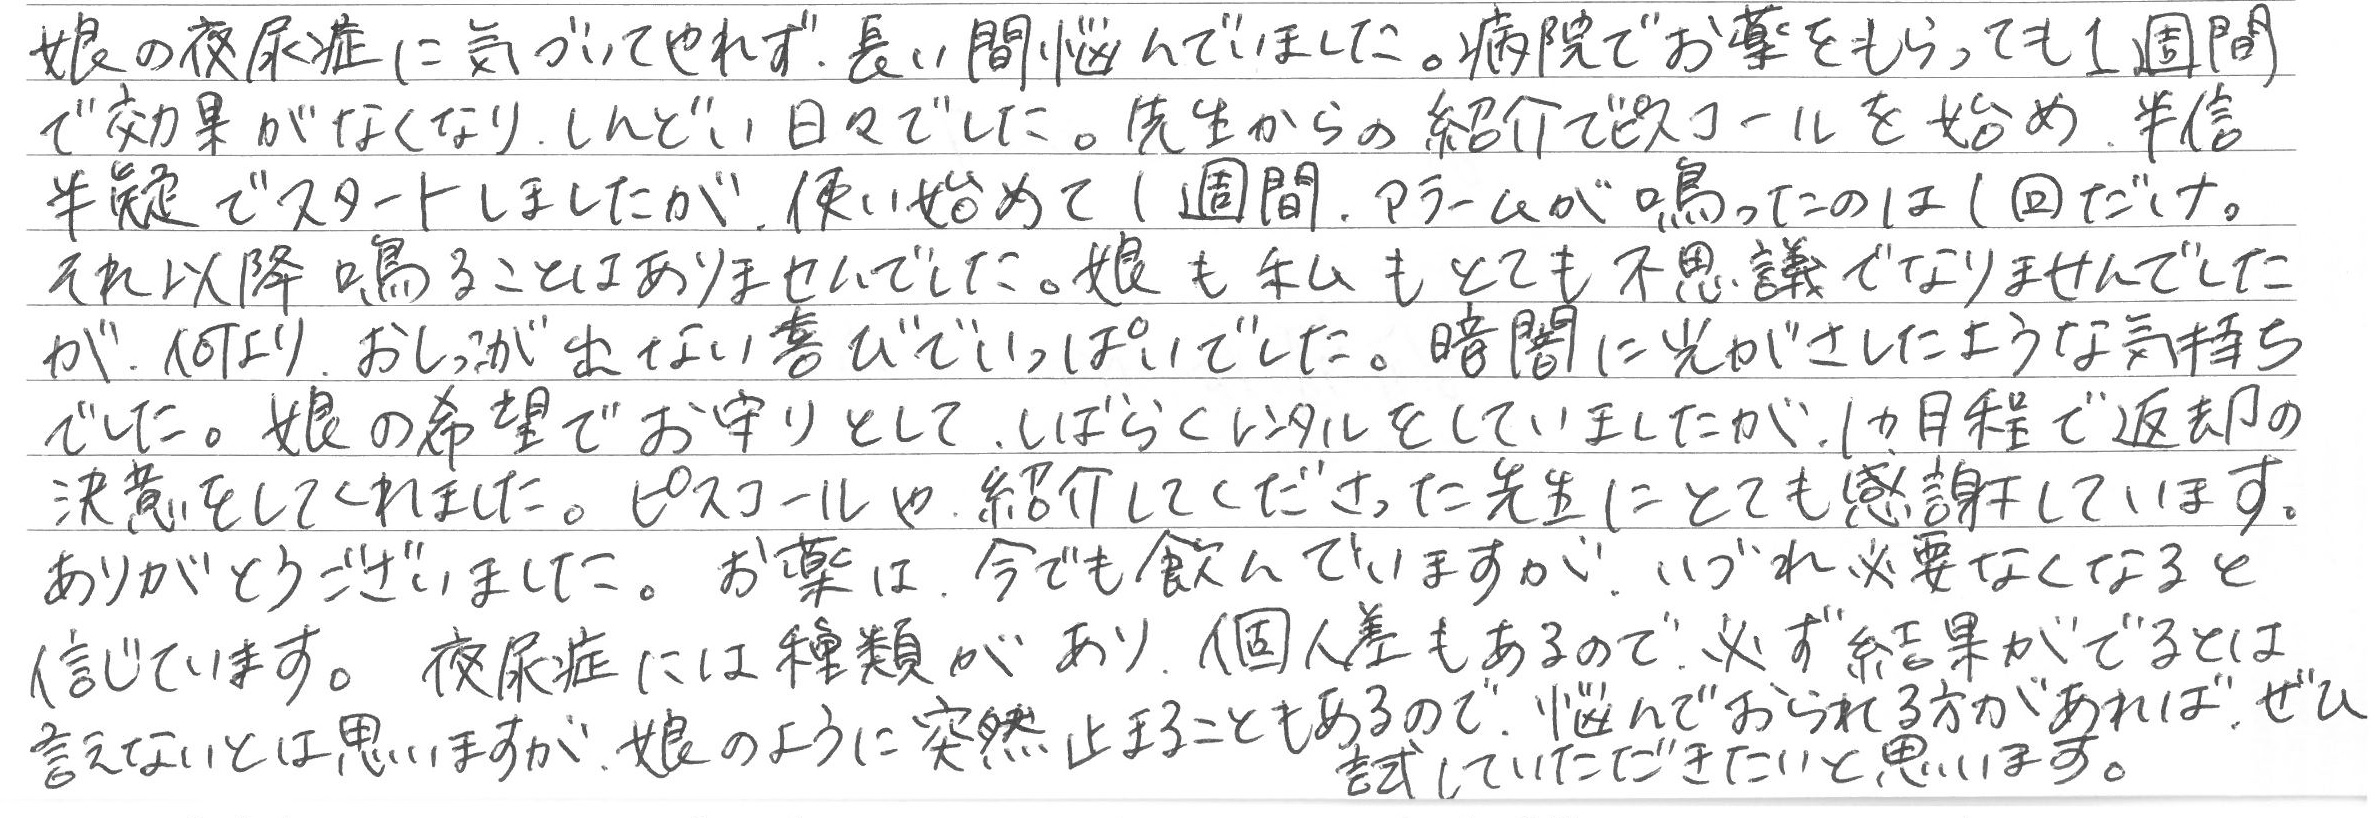 娘の夜尿症に気づいてやれず、長い間悩んでいました。病院でお薬をもらっても1週間
で効果がなくなり、しんどい日々でした。先生からの紹介でピスコールを始め、半信
半疑でスタートしましたが、使い始めて1週間、アラームが鳴ったのは1回だけ。
それ以降鳴ることはありませんでした。娘も私もとても不思議でなりませんでした
が、何より、おしっこが出ない喜びでいっぱいでした。暗闇に光がさしたような気持ち
でした。娘の希望でお守りとして、しばらくレンタルをしていましたが、1ヵ月程で返却の
決意をしてくれました。ピスコールや、紹介してくださった先生にとても感謝しています。
ありがとうございました。お薬は、今でも飲んでいますが、いづれ必要なくなると
信じています。夜尿症には種類があり、個人差もあるので、必ず結果がでるとは
言えないとは思いますが、娘のように突然止まることもあるので、悩んでおられる方があれば、ぜひ
試していただきたいと思います。